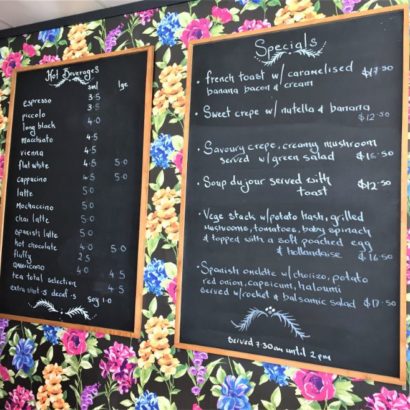 Hot Beverages
sml lge
espresso 3.5
piccolo 3.5
long black 4.0
Macchiato 4.5
vienna 4.5
flat white 4.5 5.0
cappacino 4.5 5.0
latte 5.0
Mochaccino 5.0
chai latte 5.0
spanish latte 5.0
hot chocolate 4.0 5.0
fluffy 2.5
americano 4.0
tea total selection 4.5
extra shot.5 decaf .5 Soy 1.0
Specials
• french toast w/ caramelised $17.50
banana bacon & cream
• Sweet crepe w/ nutella & banana
$12.50
• Savoury crepe, creamy mushroom
served w/ green salad $16.50
• Soup du jour served with $12.50
toast
• Vege stack w/ potato hash, grilled
mushrooms, tomatoes, baby spinach
& topped with a soft poached egg
& hollandaise $16.50
• Spanish omelette w/ chorizo, potato
red onion, capsicum, haloumi
Served w/ rocket & balsamic salad $17.50
Served 7.30am until 2pm